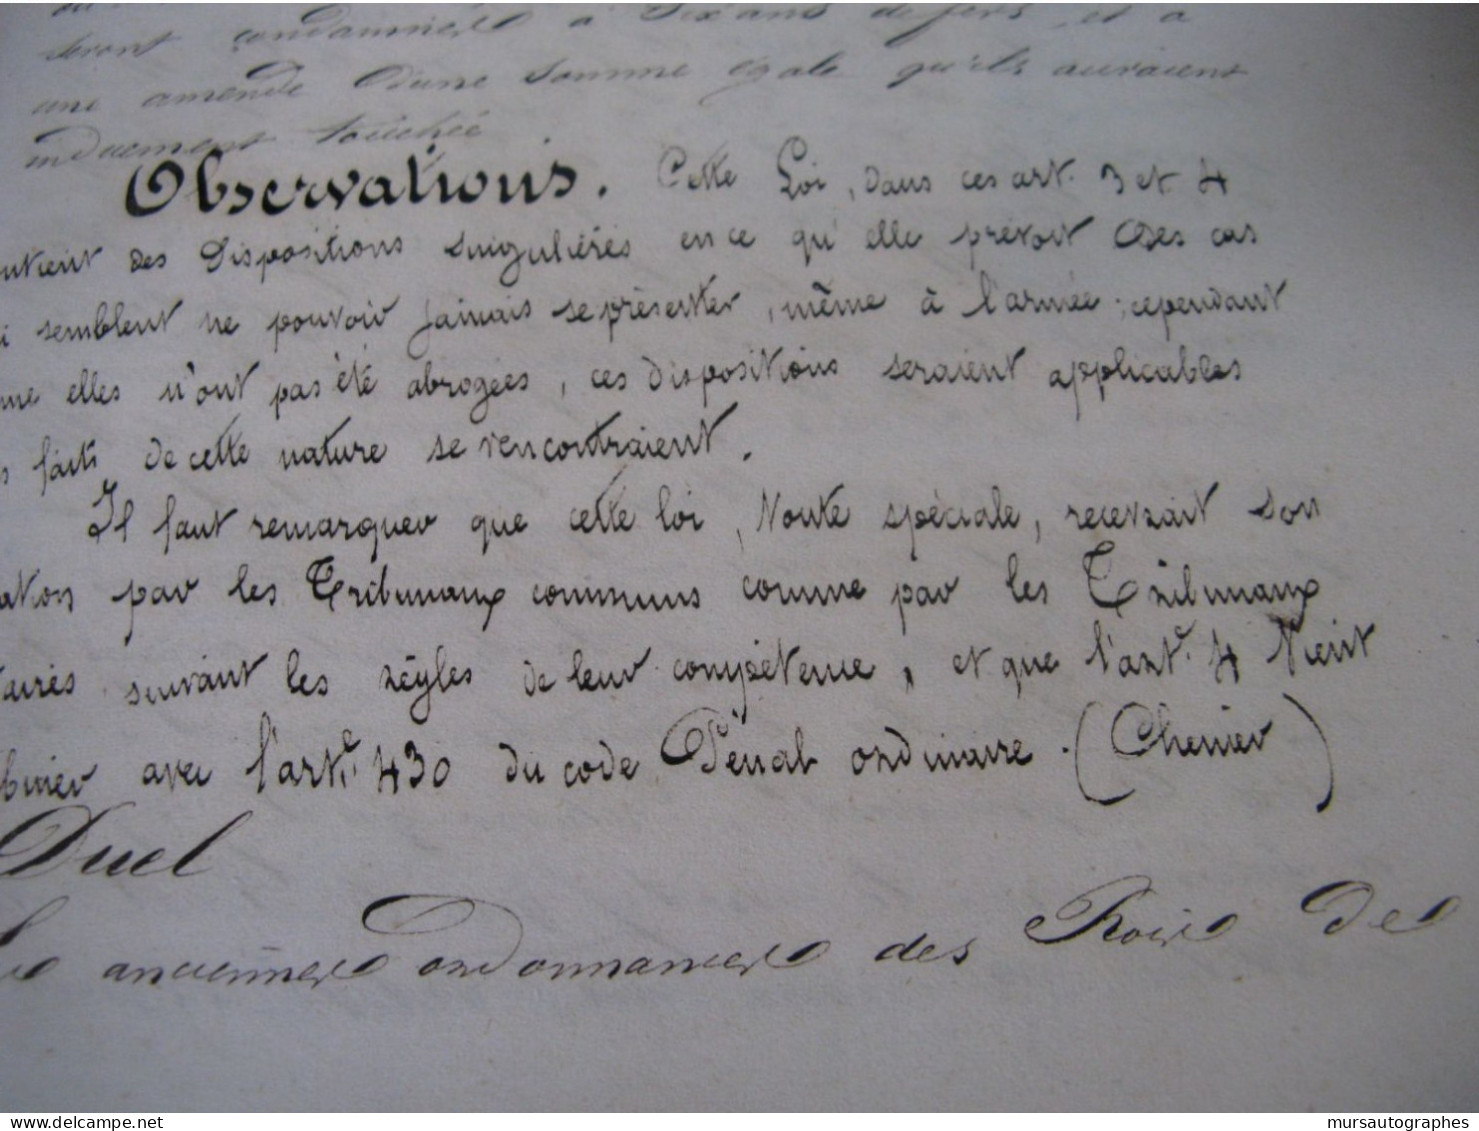 seront condamnés à Dix ans de fers, et à
une amende d'une somme égale qu'ils auraient
induement touchée
Observations. Cette Loi, dans ces art. 3 et 4
ntient des Dispositions singulières en ce qu'elle prévoit des cas
i semblent ne pouvoir jamais se présenter, même à l'armée; cependant
me elles n'ont pas été abrogées, ces dispositions seraient applicables
s faits de cette nature se rencontraient.
Il faut remarquer que cette loi, toute spéciale, recevrait son
ation par les Tribunaux communs comme par les Tribunaux
taires suivant les règles de leur compétence, et que l'art. 4 vient
biner avec l'art. 430 du code Pénal ordinaire. (Chenier)
Duel
anciennes ordonnances des Rois de
delcampe.net
mursautographes